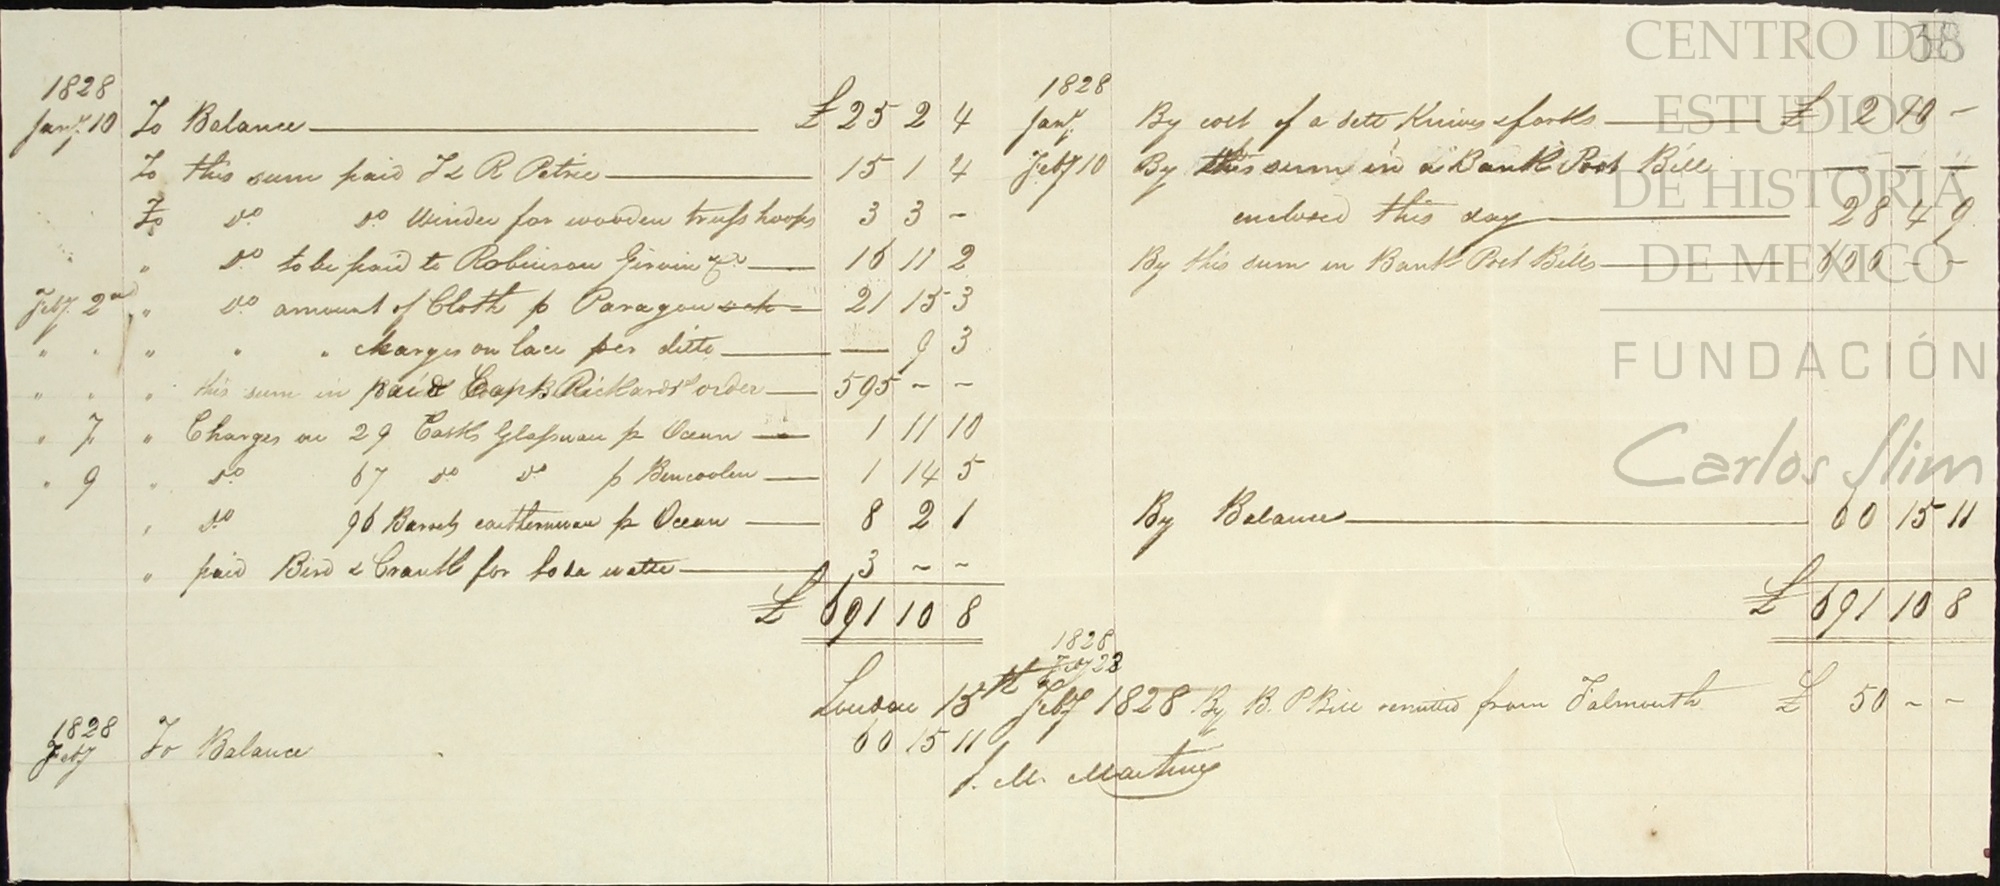 38
CENTRO DE
ESTUDIOS
DE HISTORIA
DE MÉXICO
FUNDACIÓN
Carlos Slim
1828
Jany. 10 To Balance £ 25 2 4
To this sum paid J & R Petrie 15 1 4
To Do Do Winder for wooden truss hoops 3 3 -
" Do to be paid to Robinson Girvin &Co 16 11 2
Feby. 2nd " Do amount of Cloth p Paragon 21 15 3
" " " " " charges on lace per ditto — 9 3
" " " this sum in paid Capt Rickards order 595 - -
" 7 " Charges on 29 Casks Glassware p Ocean 1 11 10
" 9 " Do 67 Do Do p Bencoolen 1 14 5
" Do 96 Barrels earthenware p Ocean 8 2 1
" paid Bird & Crauth for Soda water 3 - -
£ 691 10 8
1828
Feby To Balance 60 15 11
1828
Jany. By cost of a sett Knives & forks £ 2 10 -
Feby 10 By this sum in a Bank Post Bill — — —
enclosed this day 28 4 9
By this sum in Bank Post Bills 600 - -
By Balance 60 15 11
£ 691 10 8
London 15th Feby 1828
J. M. Martinez
1828
Feby 23 By B. P Bill remitted from Falmouth £ 50 - -